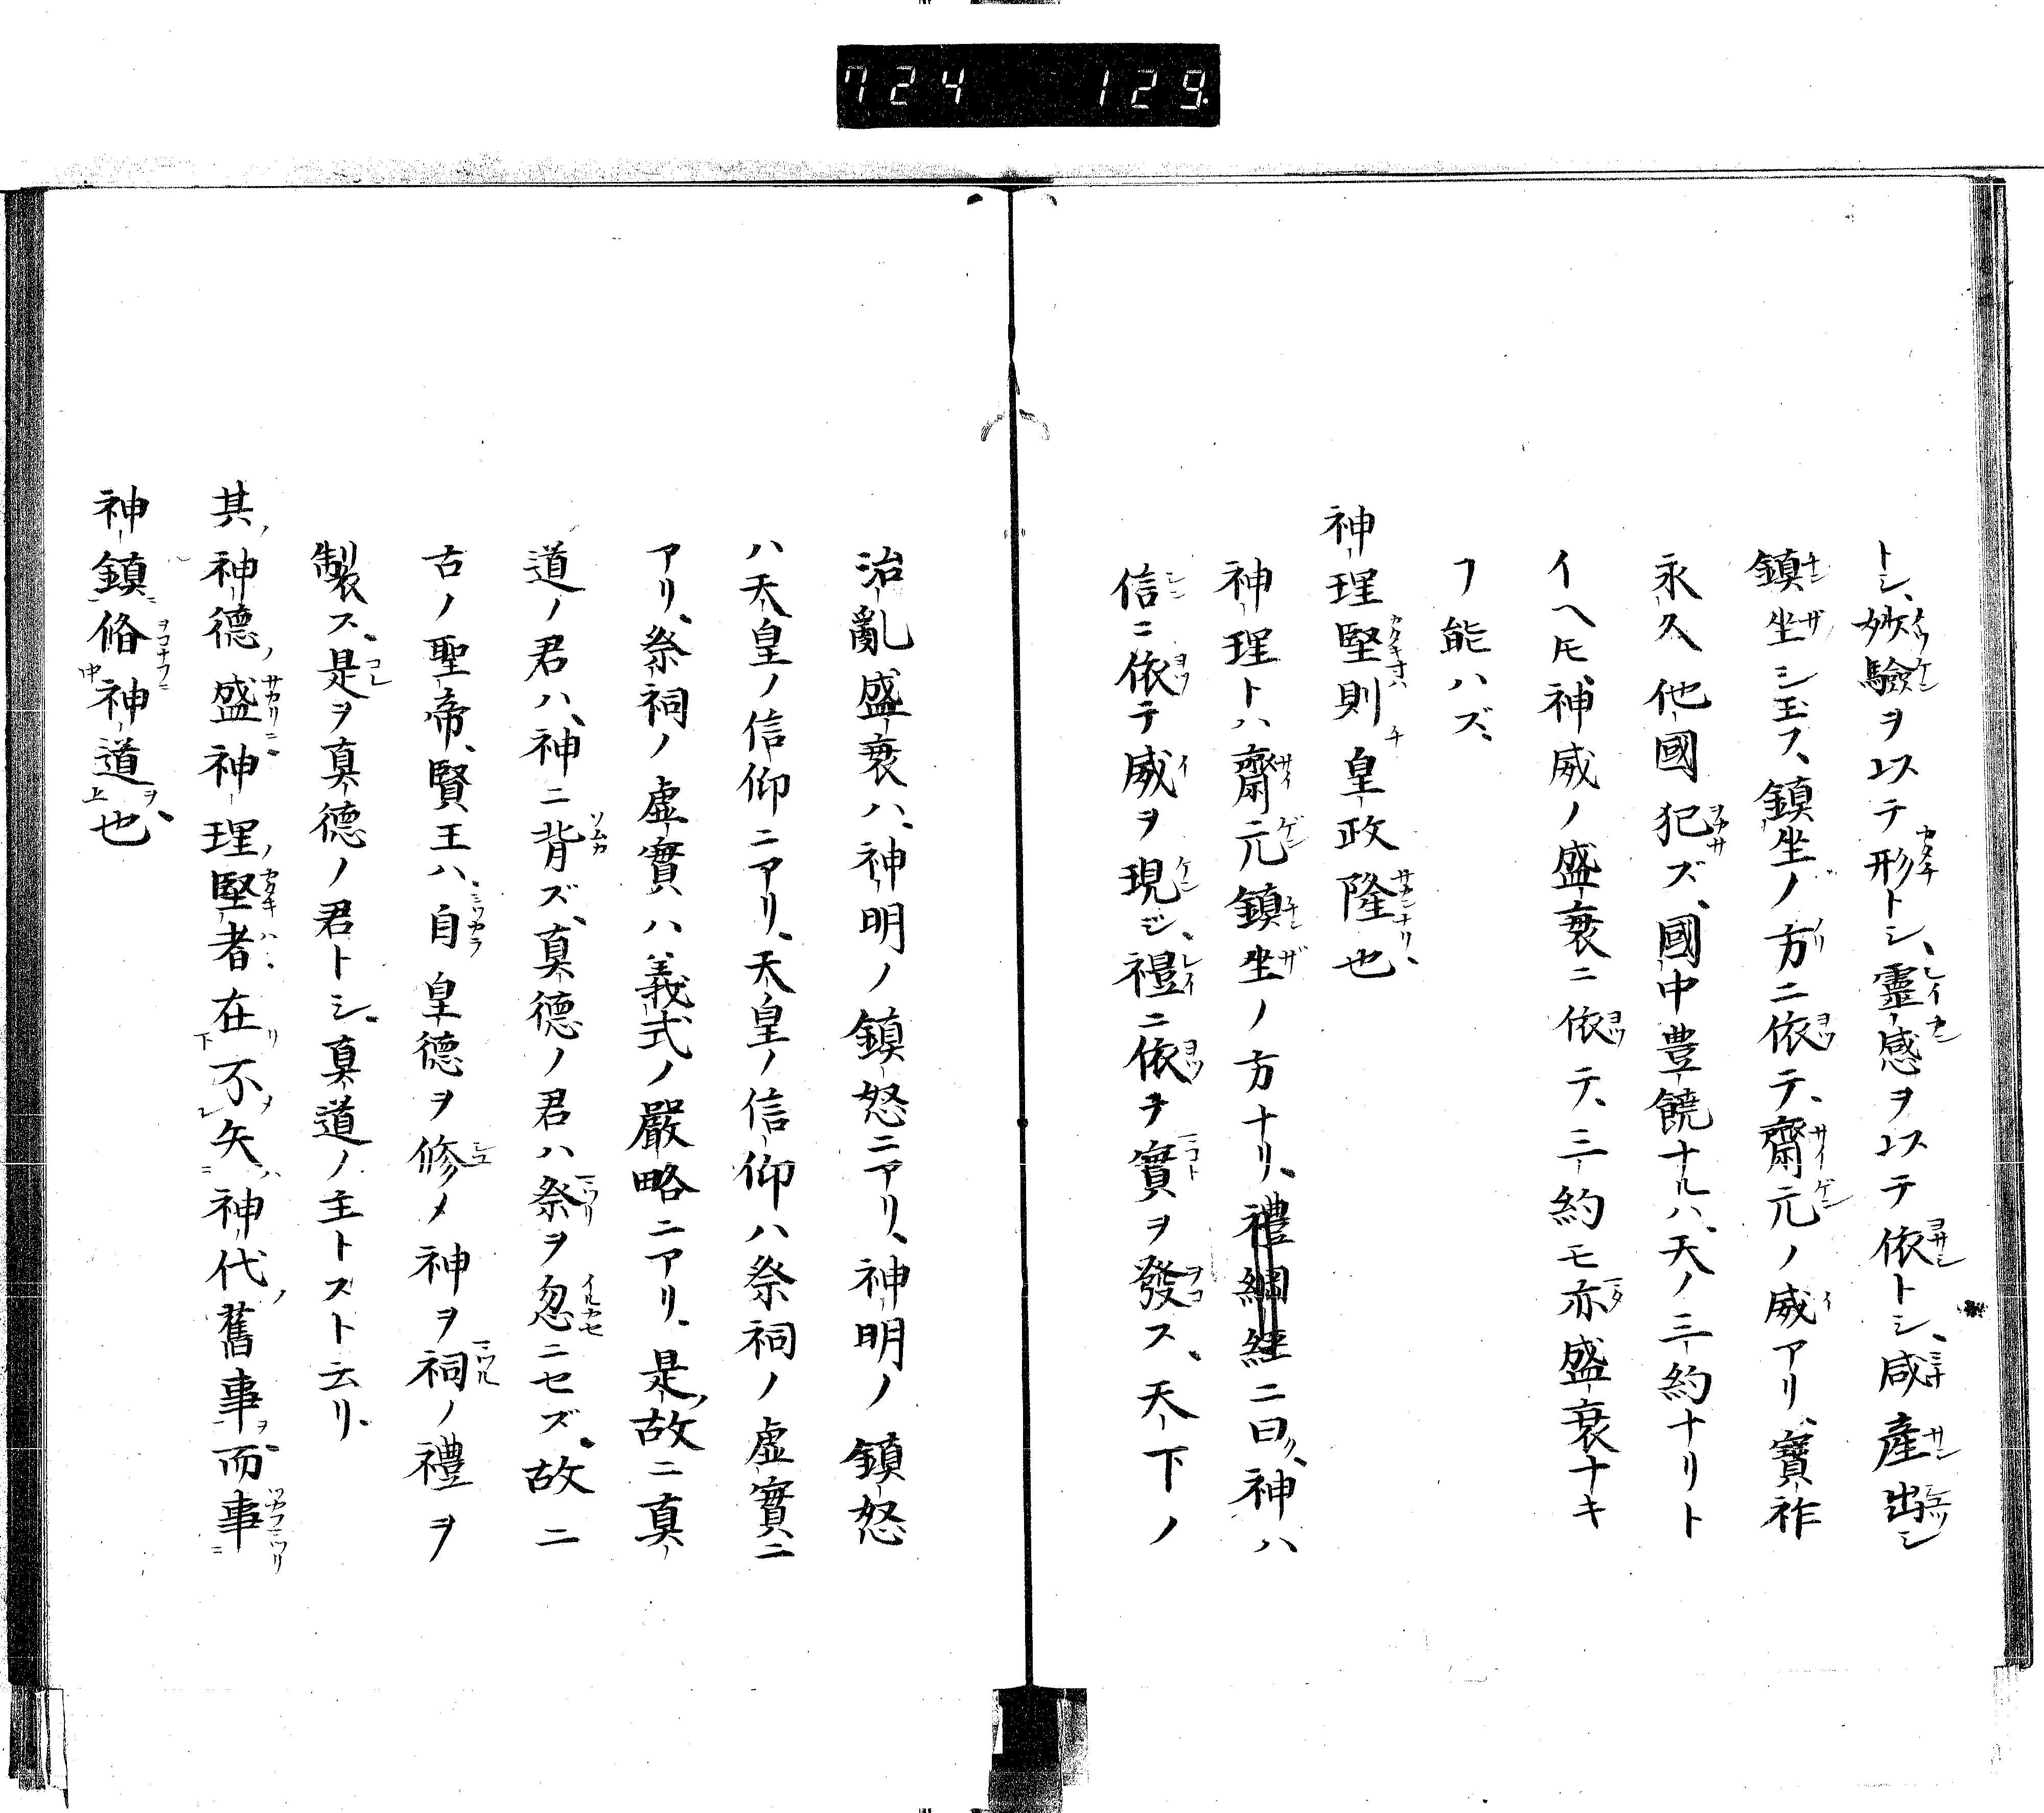 724 129.
トシ、妙驗ヲ以テ形トシ、靈感ヲ以テ依トシ、咸産出シ
鎮坐シ玉フ、鎮坐ノ方ニ依テ、齋元ノ威アリ、寶祚
永久他國犯ズ、國中豊饒ナルハ、天ノ三約ナリト
イヘ𪜈、神威ノ盛衰ニ依テ、三約モ亦盛衰ナキ
フ能ハズ、
神理堅則皇政隆也
神理トハ齋元鎮坐ノ方ナリ、禮綱経ニ曰ク、神ハ
信ニ依テ威ヲ現ジ、禮ニ依テ實ヲ發ス、天下ノ
治亂盛衰ハ、神明ノ鎮怒ニアリ、神明ノ鎮怒
ハ天皇ノ信仰ニアリ、天皇ノ信仰ハ祭祠ノ虚實ニ
アリ、祭祠ノ虚實ハ義式ノ嚴略ニアリ、是故ニ真
道ノ君ハ、神ニ背ズ、真德ノ君ハ祭ヲ忽ニセズ、故ニ
古ノ聖帝、賢王ハ、自皇德ヲ修メ神ヲ祠ノ禮ヲ
製ス、是ヲ真德ノ君トシ、真道ノ主トスト云リ、
其神德盛神理堅者在不矢神代舊事而事
神鎮脩神道也